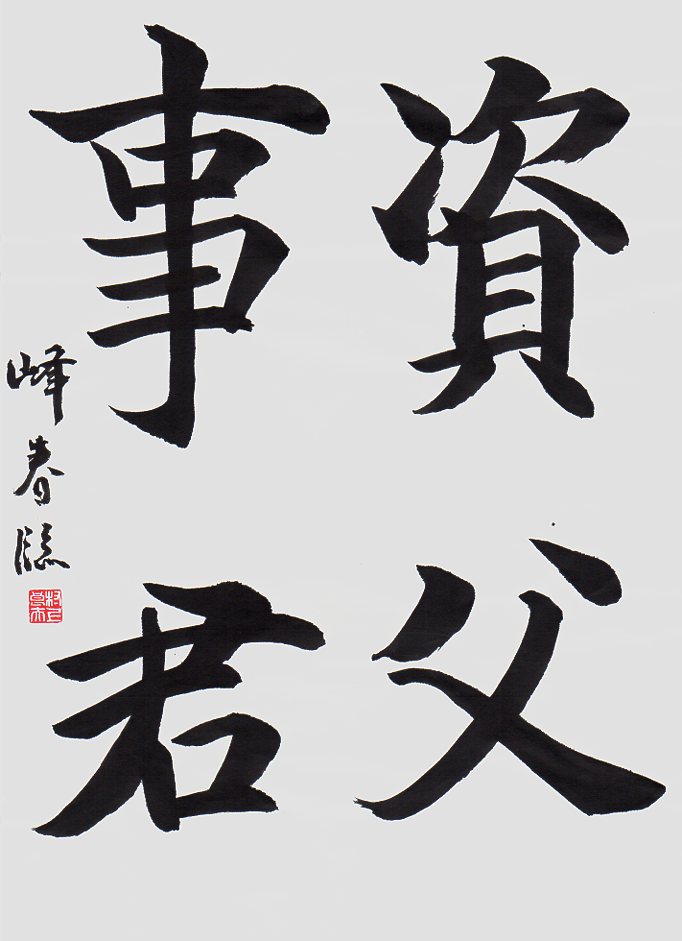 資父
事君
峰春臨